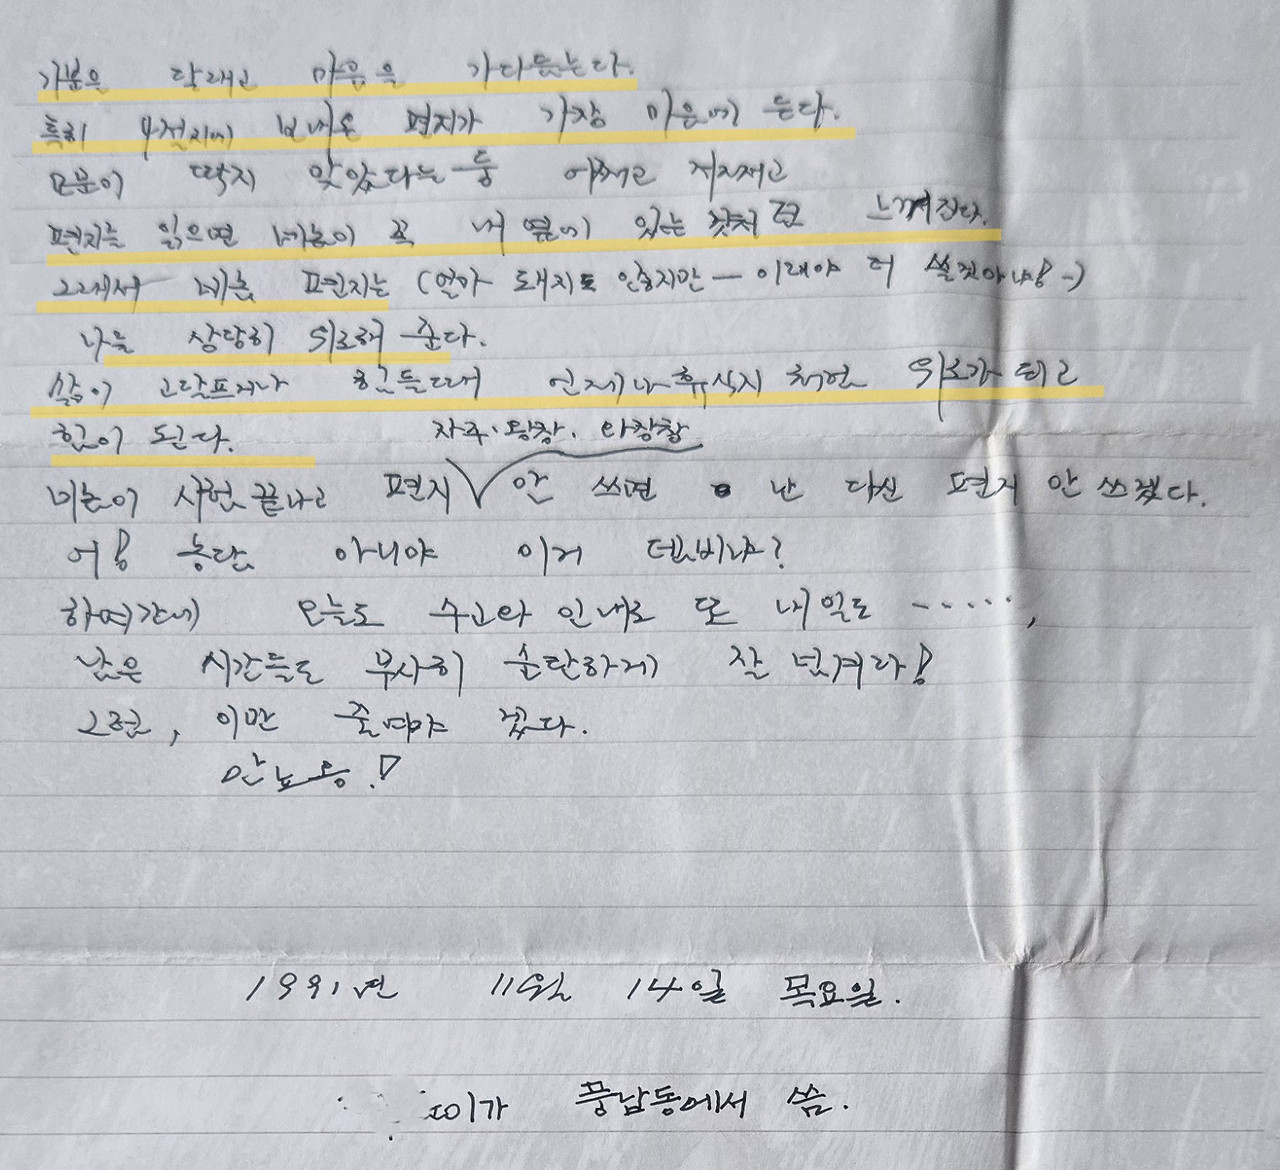 기분은 달래고 마음을 가다듬는다.
특히 4절지에 보내온 편지가 가장 마음에 든다.
모문이 딱지 맞았다는 둥 어쩌고 저쩌고
편지를 읽으면 네놈이 꼭 내 옆에 있는 것처럼 느껴진다.
그래서 네놈 편지는 (얼마 돼지도 않지만 — 이래야 더 쓸것아냐! -)
나를 상당히 위로해 준다.
삶이 고달프거나 힘들때 언제나 휴식지 처럼 위로가 되고
힘이 된다.
자주·왕창. 와장창
네놈이 시험 끝나고 편지 안 쓰면 난 다신 편지 안 쓰겠다.
어! 농담 아니야 이거 덤비냐?
하여간에 오늘도 수고와 인내로 또 내일도 ‥‥‥,
남은 시간들도 무사히 순탄하게 잘 넘겨라!
그럼, 이만 줄여야 겠다.
안뇨옹!
1991년 11월 14일 목요일.
이가 풍남동에서 씀.